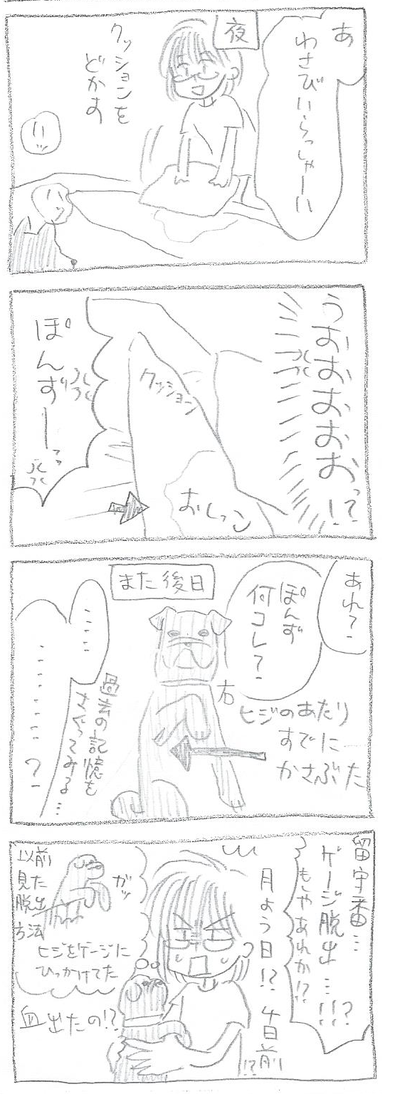 夜
あ
わさびいらっしゃーい
クッションを
どかす
うおおおおおおっ!?
クッション
おしっこ
ぽんずーーっ
また後日
あれ?-
ぽんず
何コレ?-
右
ヒジのあたり
すでに
かさぶた
過去の記憶を
さぐってみる…
……
………?-
留守番…
ゲージ脱出…!!?
もしやあれか!?
月よう日!?
4日前!?
ガッ
以前
見た
脱出
方法
ヒジをゲージに
ひっかけてた
血出たの!?